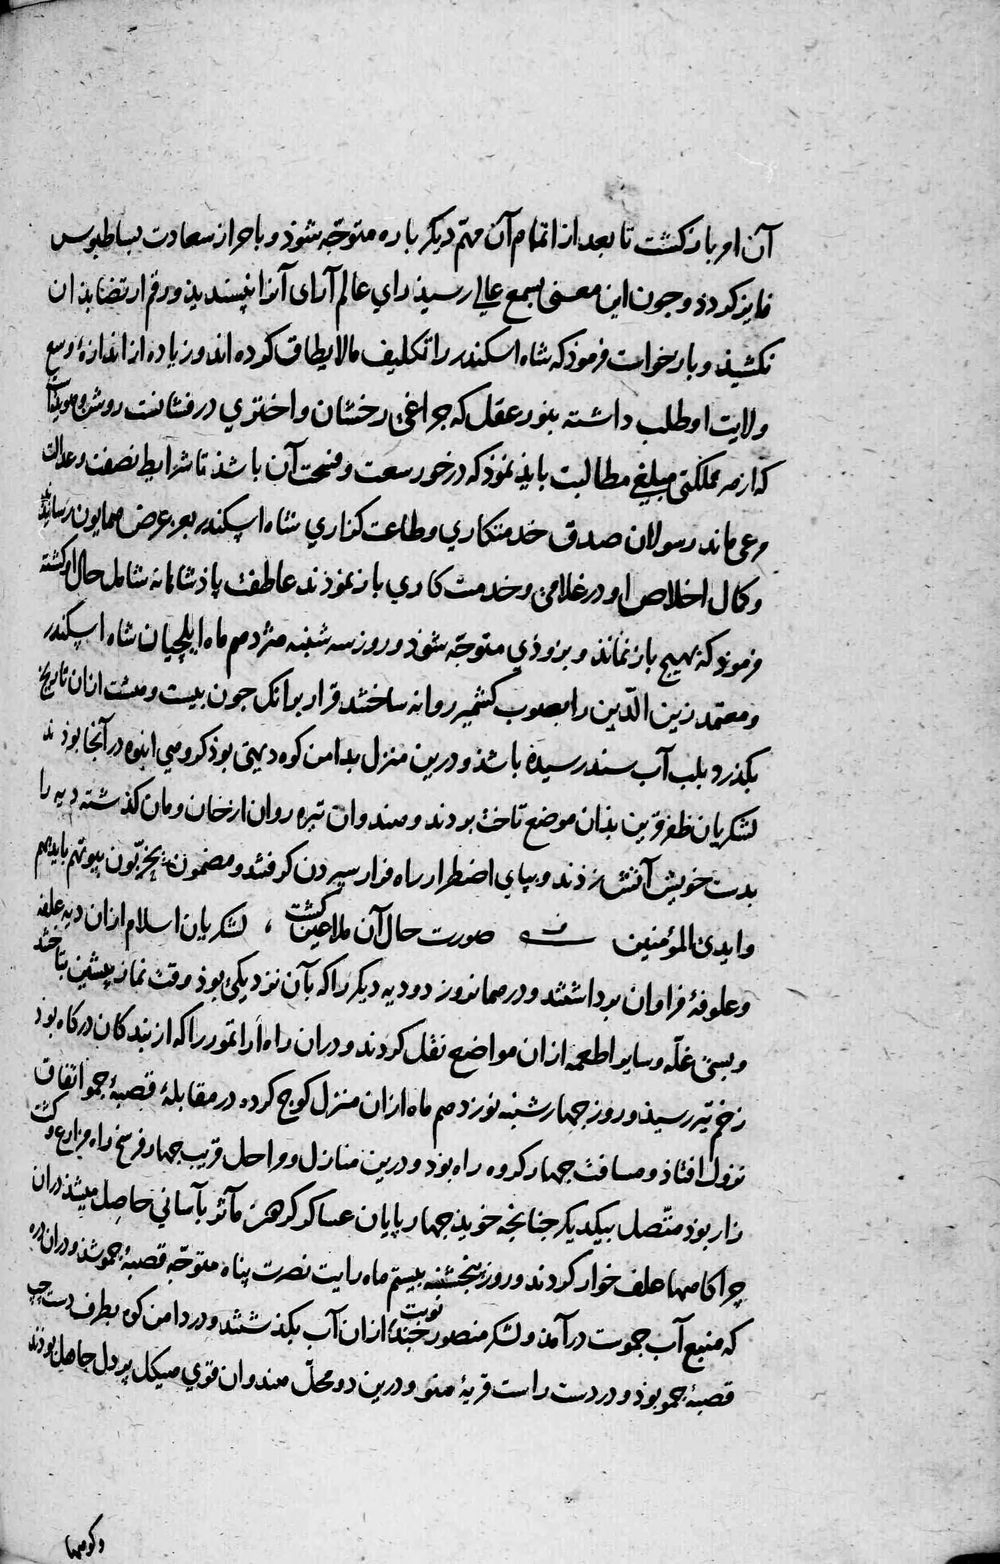 آن امر بازگشت تا بعد از اتمام آن مهمّ دیکر باره متوجّه شوذ و باحراز سعادت بساطبوس
فایز کردد و جون این معنی بسمع عالی رسیذ رای عالم آرای آنرا نپسندیذ و رقم ارتضا بذان
نکشیذ و بازخواست فرموذ که شاه اسکندر را تکلیف مالا یطاق کرده اند و زیاده از اندازۀ وسع
ولایت او طلب داشته بنور عقل که جراغی رخشان و اختری درفشانست روشن و هویداست
که از هر مملکتی مبلغی مطالبت بایذ نموذ که درخور سعت و فسحت آن باشذ تا شرایط نصفت و عدالت
مرعی ماند رسولان صدق خدمتکاری و طاعت کزاری شاه اسکندر بعز عرض همایون رسانیدند
و کمال اخلاص او در غلامی و خدمت کاری باز نموذند عاطفت پاذشاهانه شامل حال او کشته
فرموذ که بهیج باز نماند و بزوذی متوجّه شوذ و روز سه شنبه هژدهم ماه ایلچیان شاه اسکندر
و معتمد زین الدّین را بصوب کشمیر روانه ساختند قرار بر آنک جون بیست و هشت از ان تاریخ
بکذرد بلب آب سند رسیده باشذ و درین منزل بدامن کوه دیهی بوذ کروهی انبوه در آنجا بوذند
لشکریان ظفر قرین بذان موضع تاخت بردند و هندوان تیره روان از خان و مان کذشته دیه را
بدست خویش آتش زذند و بپای اضطرار راه فرار سپردن کرفتند و مضمون یخربّون بیوتهم بایدیهم
وایدی المؤمنین صورت حال آن ملاعین کشت ، لشکریان اسلام از ان دیه غله
و علوفۀ فراوان برداشتند و در همان روز دو دیه دیکر را که بآن نزدیکی بوذ وقت نماز پیشین بتاختند
و بسی غلّه و سایر اطعمه از ان مواضع نقل کردند و در ان راه اراتمور را که از بندکان درکاه بوذ
زخم تیر رسیذ و روز جهارشنبه نوزدهم ماه از ان منزل کوج کرده در مقابلۀ قصبۀ جمو اتفاق
نزول افتاذ و مسافت جهار کروه راه بوذ و درین منازل و مراحل قریب جهار فرسخ راه مزارع و کشت
زار بوذ متّصل بیکدیکر جنانجه خویذ جهار پایان عساکر کوهر مآثر بآسانی حاصل میشذ در ان
چراکاهها علف خوار کردند و روز پنجشنبه بیستم ماه رایت نصرت پناه متوجّه قصبۀ جمو شذ و در ان دره
که منبع آب جموست درآمذ و لشکر منصور جند نوبت از ان آب بکذشتند و در دامن کوه بطرف دست چپ
قصبۀ جمو بوذ و در دست راست قریۀ منو و درین دو محلّ هندوان قوی هیکل پر دل جاهل بوذند
و کوهها